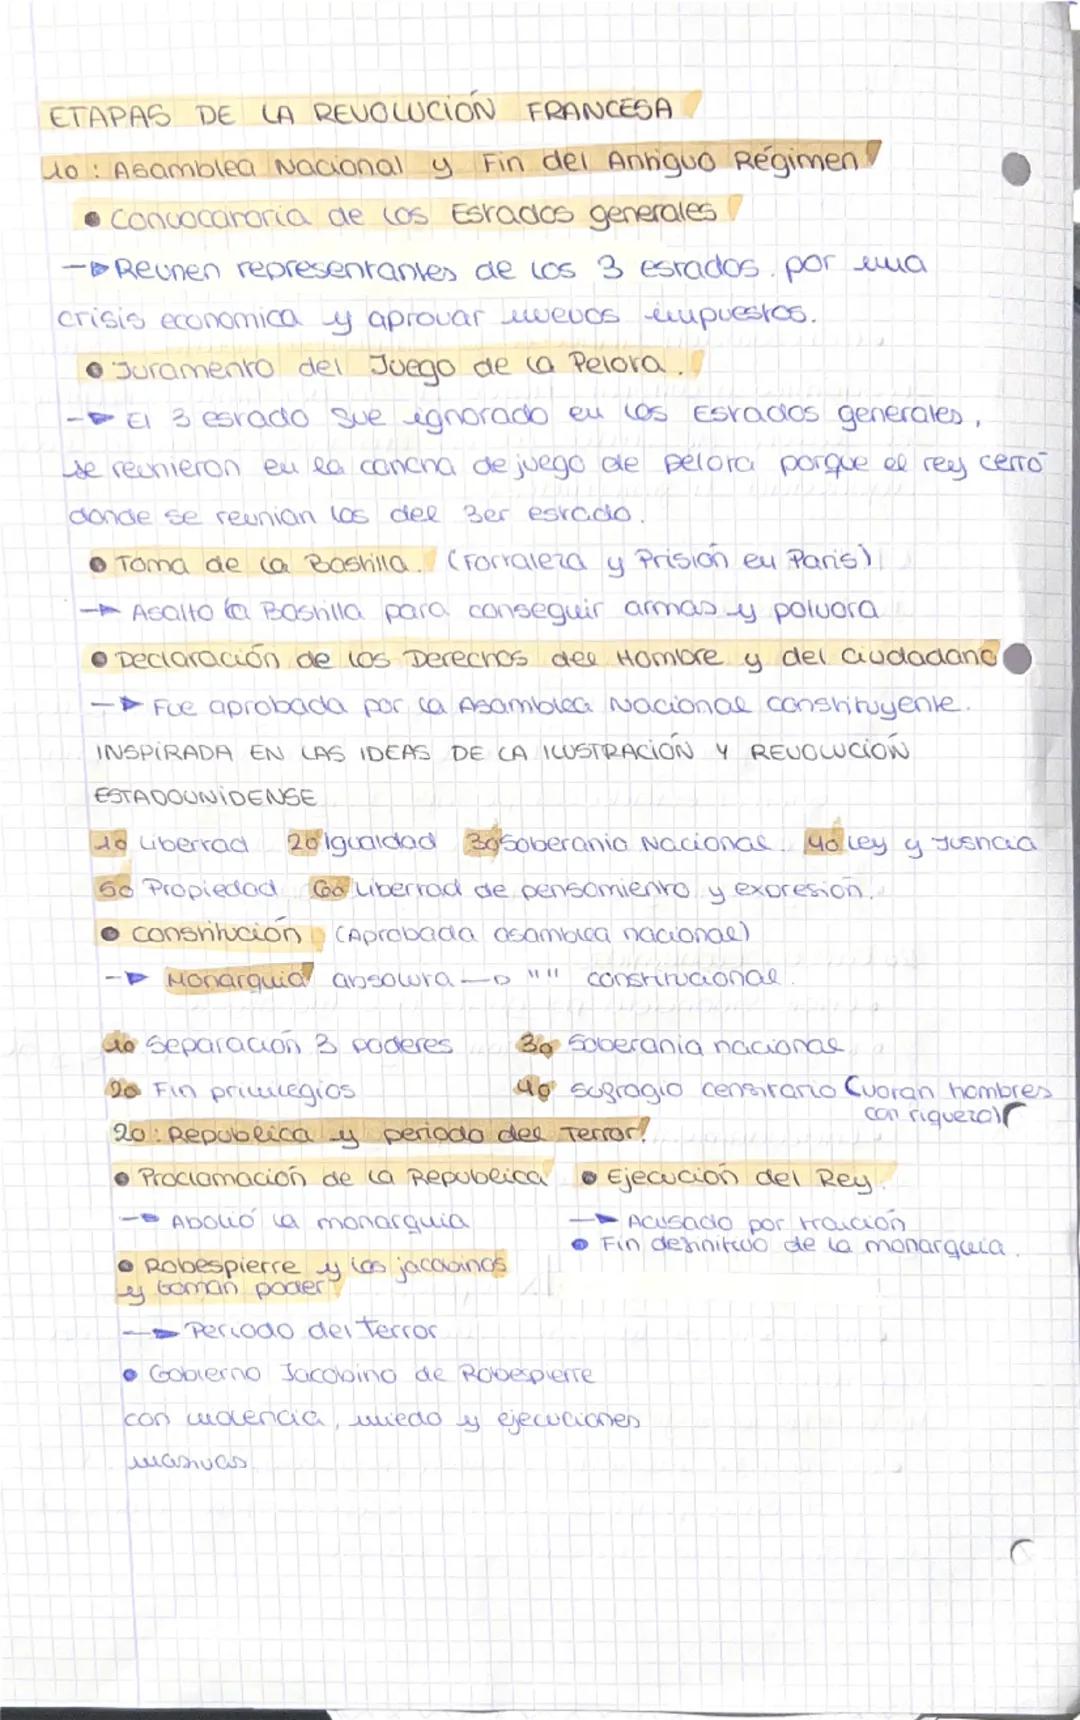 ETAPAS DE LA REVOLUCIÓN FRANCESA
1o: Asamblea Nacional y Fin del Antiguo Régimen
• Convocatoria de los Estados generales
→ Reunen representantes de los 3 estados. por una
crisis economica y aprovar nuevos impuestos.
• Juramento del Juego de la Pelota.
→ El 3 estado fue ignorado en los Estados generales,
se reunieron en la cancha de juego de pelota porque el rey cerró
donde se reunian los del 3er estado.
• Toma de la Bastilla. (Fortaleza y Prisión en Paris)
→ Asalto la Bastilla para conseguir armas y polvora
• Declaración de los Derechos del Hombre y del Ciudadano
→ Fue aprobada por la Asamblea Nacional constituyente.
INSPIRADA EN LAS IDEAS DE LA ILUSTRACIÓN Y REVOLUCIÓN
ESTADOUNIDENSE
1o Libertad 2o Igualdad 3o Soberania Nacional. 4o Ley y Justicia
5o Propiedad 6o Libertad de pensamiento y expresión.
• Constitución (Aprobada asamblea nacional)
→ Monarquia absoluta → "" constitucional.
1o Separación 3 poderes 3o Soberania nacional
2o Fin privilegios 4o Sufragio censitario (votan hombres
con riqueza)
2o: Republica y periodo del Terror.
• Proclamación de la Republica • Ejecución del Rey.
→ Abolió la monarquia → Acusado por traición
• Fin definitivo de la monarquia.
• Robespierre y los jacobinos
y toman poder
→ Periodo del Terror
• Gobierno Jacobino de Robespierre
con violencia, miedo y ejecuciones
masivas